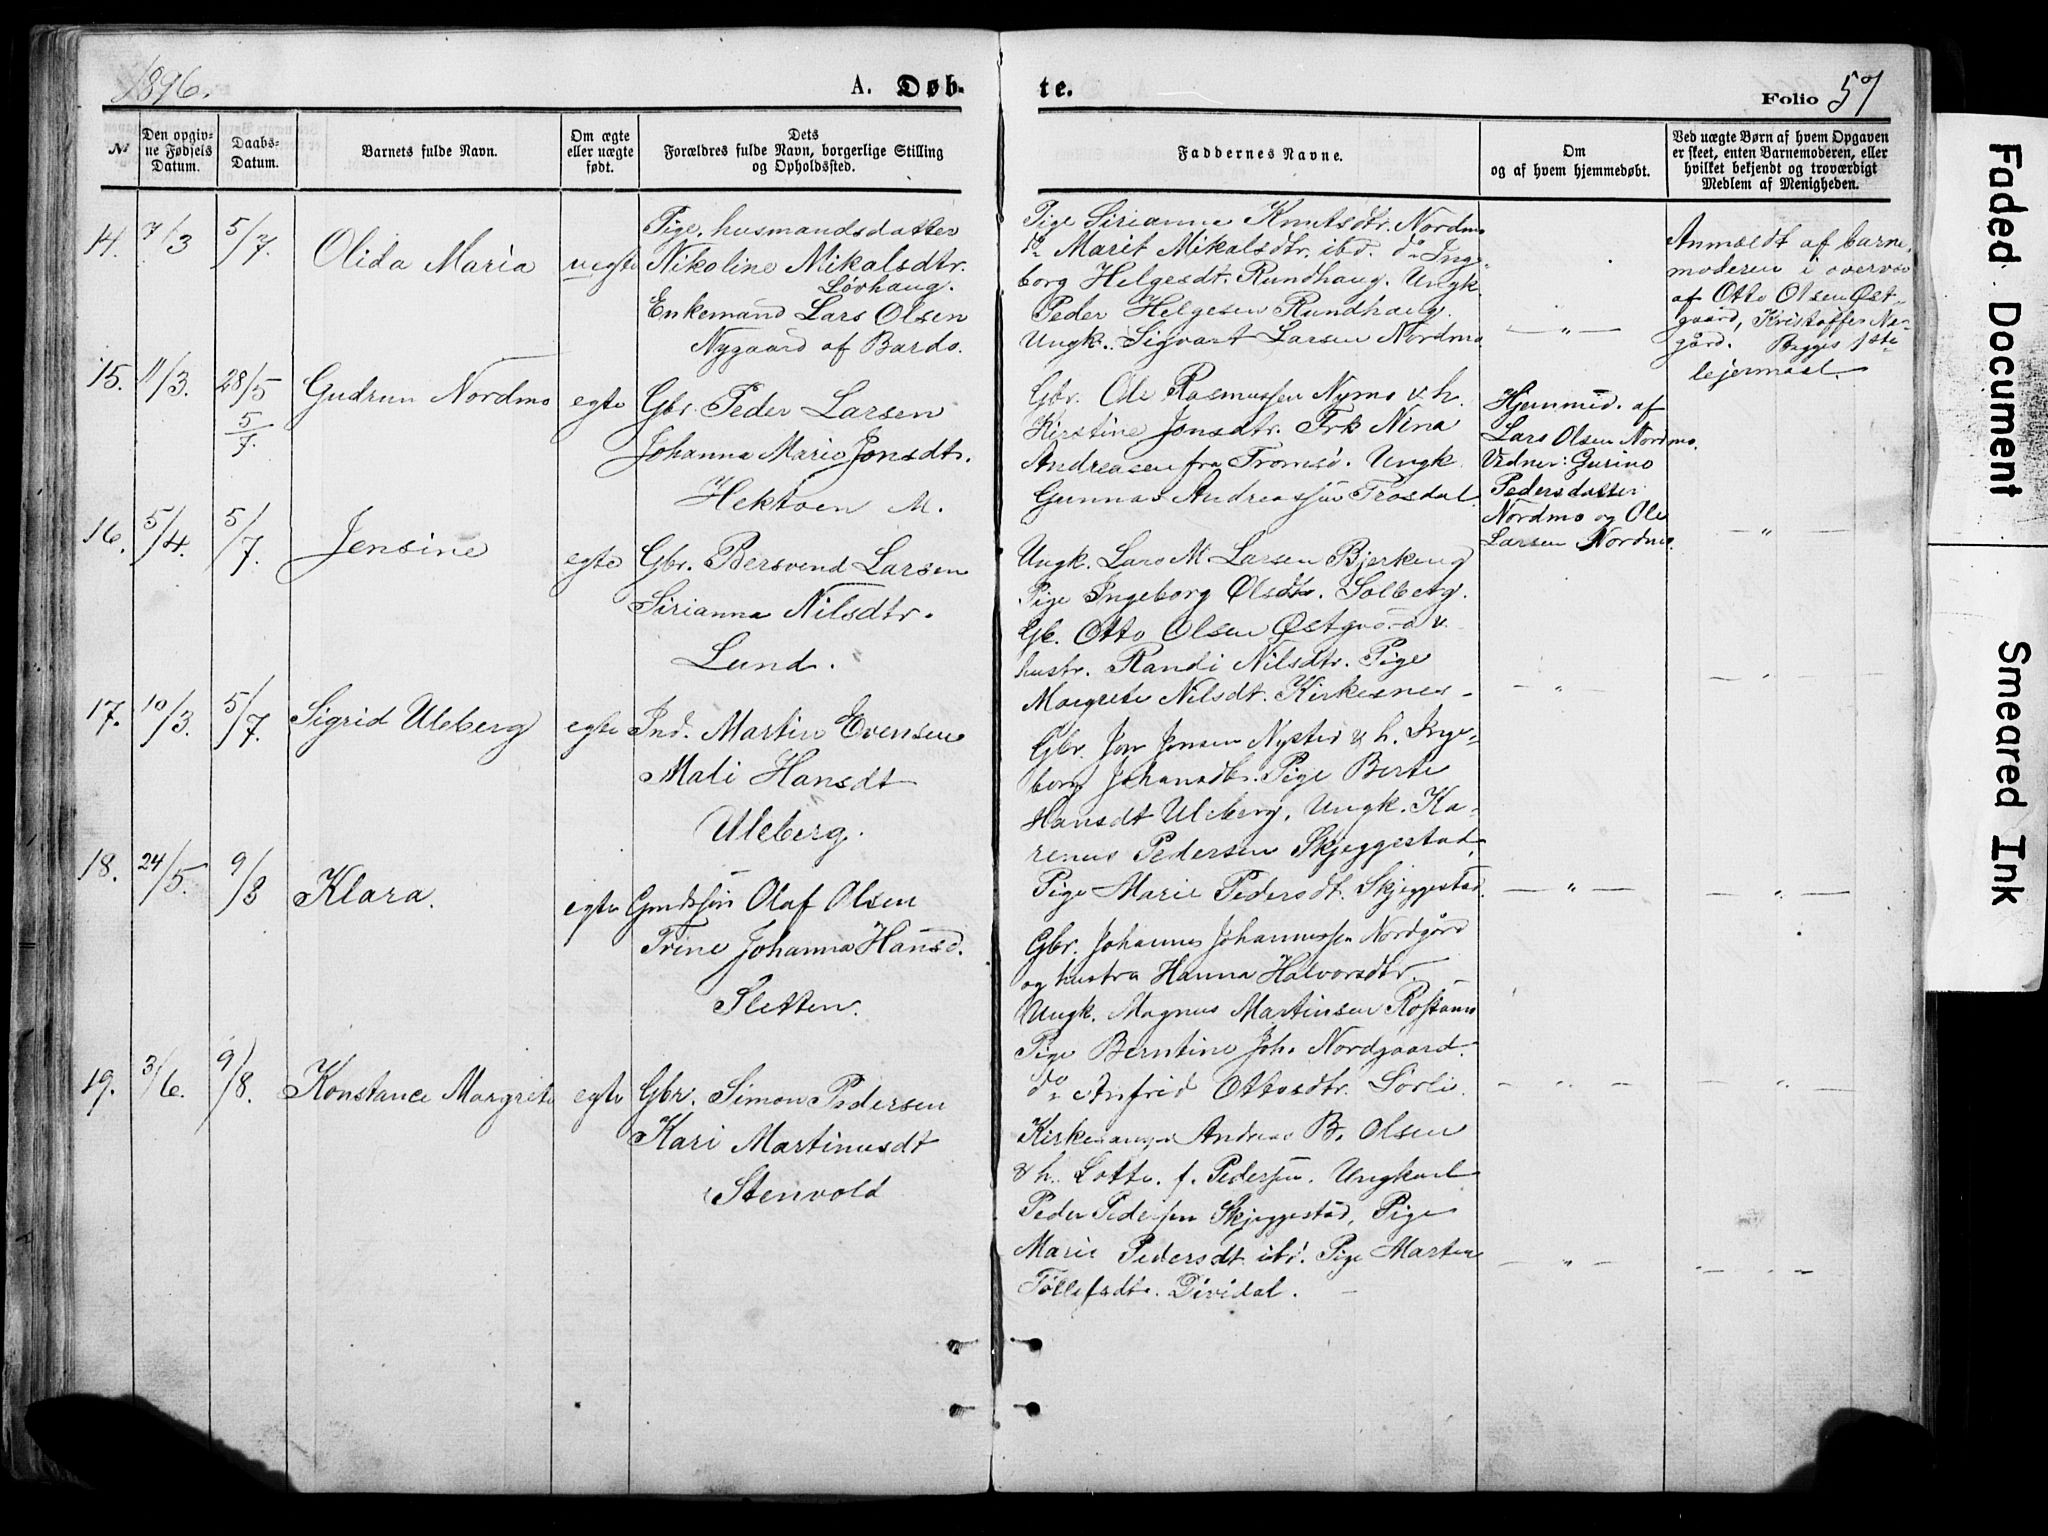 1896.
A. Døb-
te.
Folio 57
№
Den opgiv-
ne Fødsels
Datum.
Daabs-
Datum.
Barnets fulde Navn.
Om ægte
eller uægte
født.
Dets
Forældres fulde Navn, borgerlige Stilling
og Opholdssted.
Faddernes Navne.
Om
og af hvem hjemmedøbt.
Ved uægte Børn af hvem Opgaven
er skeet, enten Barnemoderen, eller
hvilket bekjendt og troværdigt
Medlem af Menigheden.
14. 7/3 5/7. Olida Maria uegte
Pige, husmandsdatter
Nikoline Mikalsdtr.
Løvhaug.
Enkemand Lars Olsen
Nygaard af Bardo.
Pige Sirianna Knutsdtr. Nordmo
do Marit Mikalsdtr. ibd. do Inge-
borg Helgesdt. Rundhaug. Ungk.
Peder Helgesen Rundhaug.
Ungk. Sigvart Larsen Nordmo
— " —
Anmeldt af barne-
moderen i overvær
af Otto Olsen Øst-
gaard, Kristoffer
gård. Begges 1ste
lejermaal.
15. 11/3. 28/5 5/7. Gudrun Nordmo egte
Gbr. Peder Larsen
Johanna Marie Jonsdtr.
Hektoen M.
Gbr. Ole Rasmussen Nymo & h.
Kirstine Jonsdtr. Frk Nina
Andreasen fra Tromsø. Ungk.
Gunnar Andreassen Frosdal
Hjemmed. af
Lars Olsen Nordmo.
Vidner: Gurine
Pedersdatter
Nordmo og Ole
Larsen Nordmo.
— " —
16. 5/4. 5/7. Jensine egte
Gbr. Bersvend Larsen
Sirianna Nilsdtr.
Lund.
Ungk. Lars M. Larsen Bjerkeng
Pige Ingeborg Olsdtr. Solberg.
Gb. Otto Olsen Østgaard &
hustr. Randi Nilsdtr. Pige
Margrete Nilsdt. Kirkesnes
— " —
— " —
17. 10/3. 5/7. Sigrid Uleberg egte
Ind. Martin Evensen
Mali Hansdt
Uleberg.
Gbr. Jon Jonsen Nysted & h. Inge-
borg Johansdtr. Pige Berte
Hansdt Uleberg, Ungk. Ka-
renus Pedersen Skjeggestad,
Pige Marie Pedersdt. Skjeggestad.
— " —
— " —
18. 24/5. 9/8 Klara. egte
Gmdssøn Olaf Olsen
Trine Johanna Hansd.
Sletten.
Gbr. Johannes Johannessen Nordgård
og hustra Hanna Halvorsdtr.
Ungk. Magnus Martinsen Rostavn
Pige Berntine Joh. Nordgaard.
do Anfrid Ottosdtr. Sørli.
— " —
— " —
19. 3/6. 9/8. Konstance Margrete egte
Gbr. Simon Pedersen
Kari Martinusdt
Stenvold
Kirkesanger Andreas B. Olsen
& h. Lotte f. Pedersen. Ungkarl
Peder Pedersen Skjeggestad, Pige
Marie Pedersdt ibd. Pige Martine
Tollefsdtr. Dividal. —
— " —
— " —
Faded Document
Smeared Ink